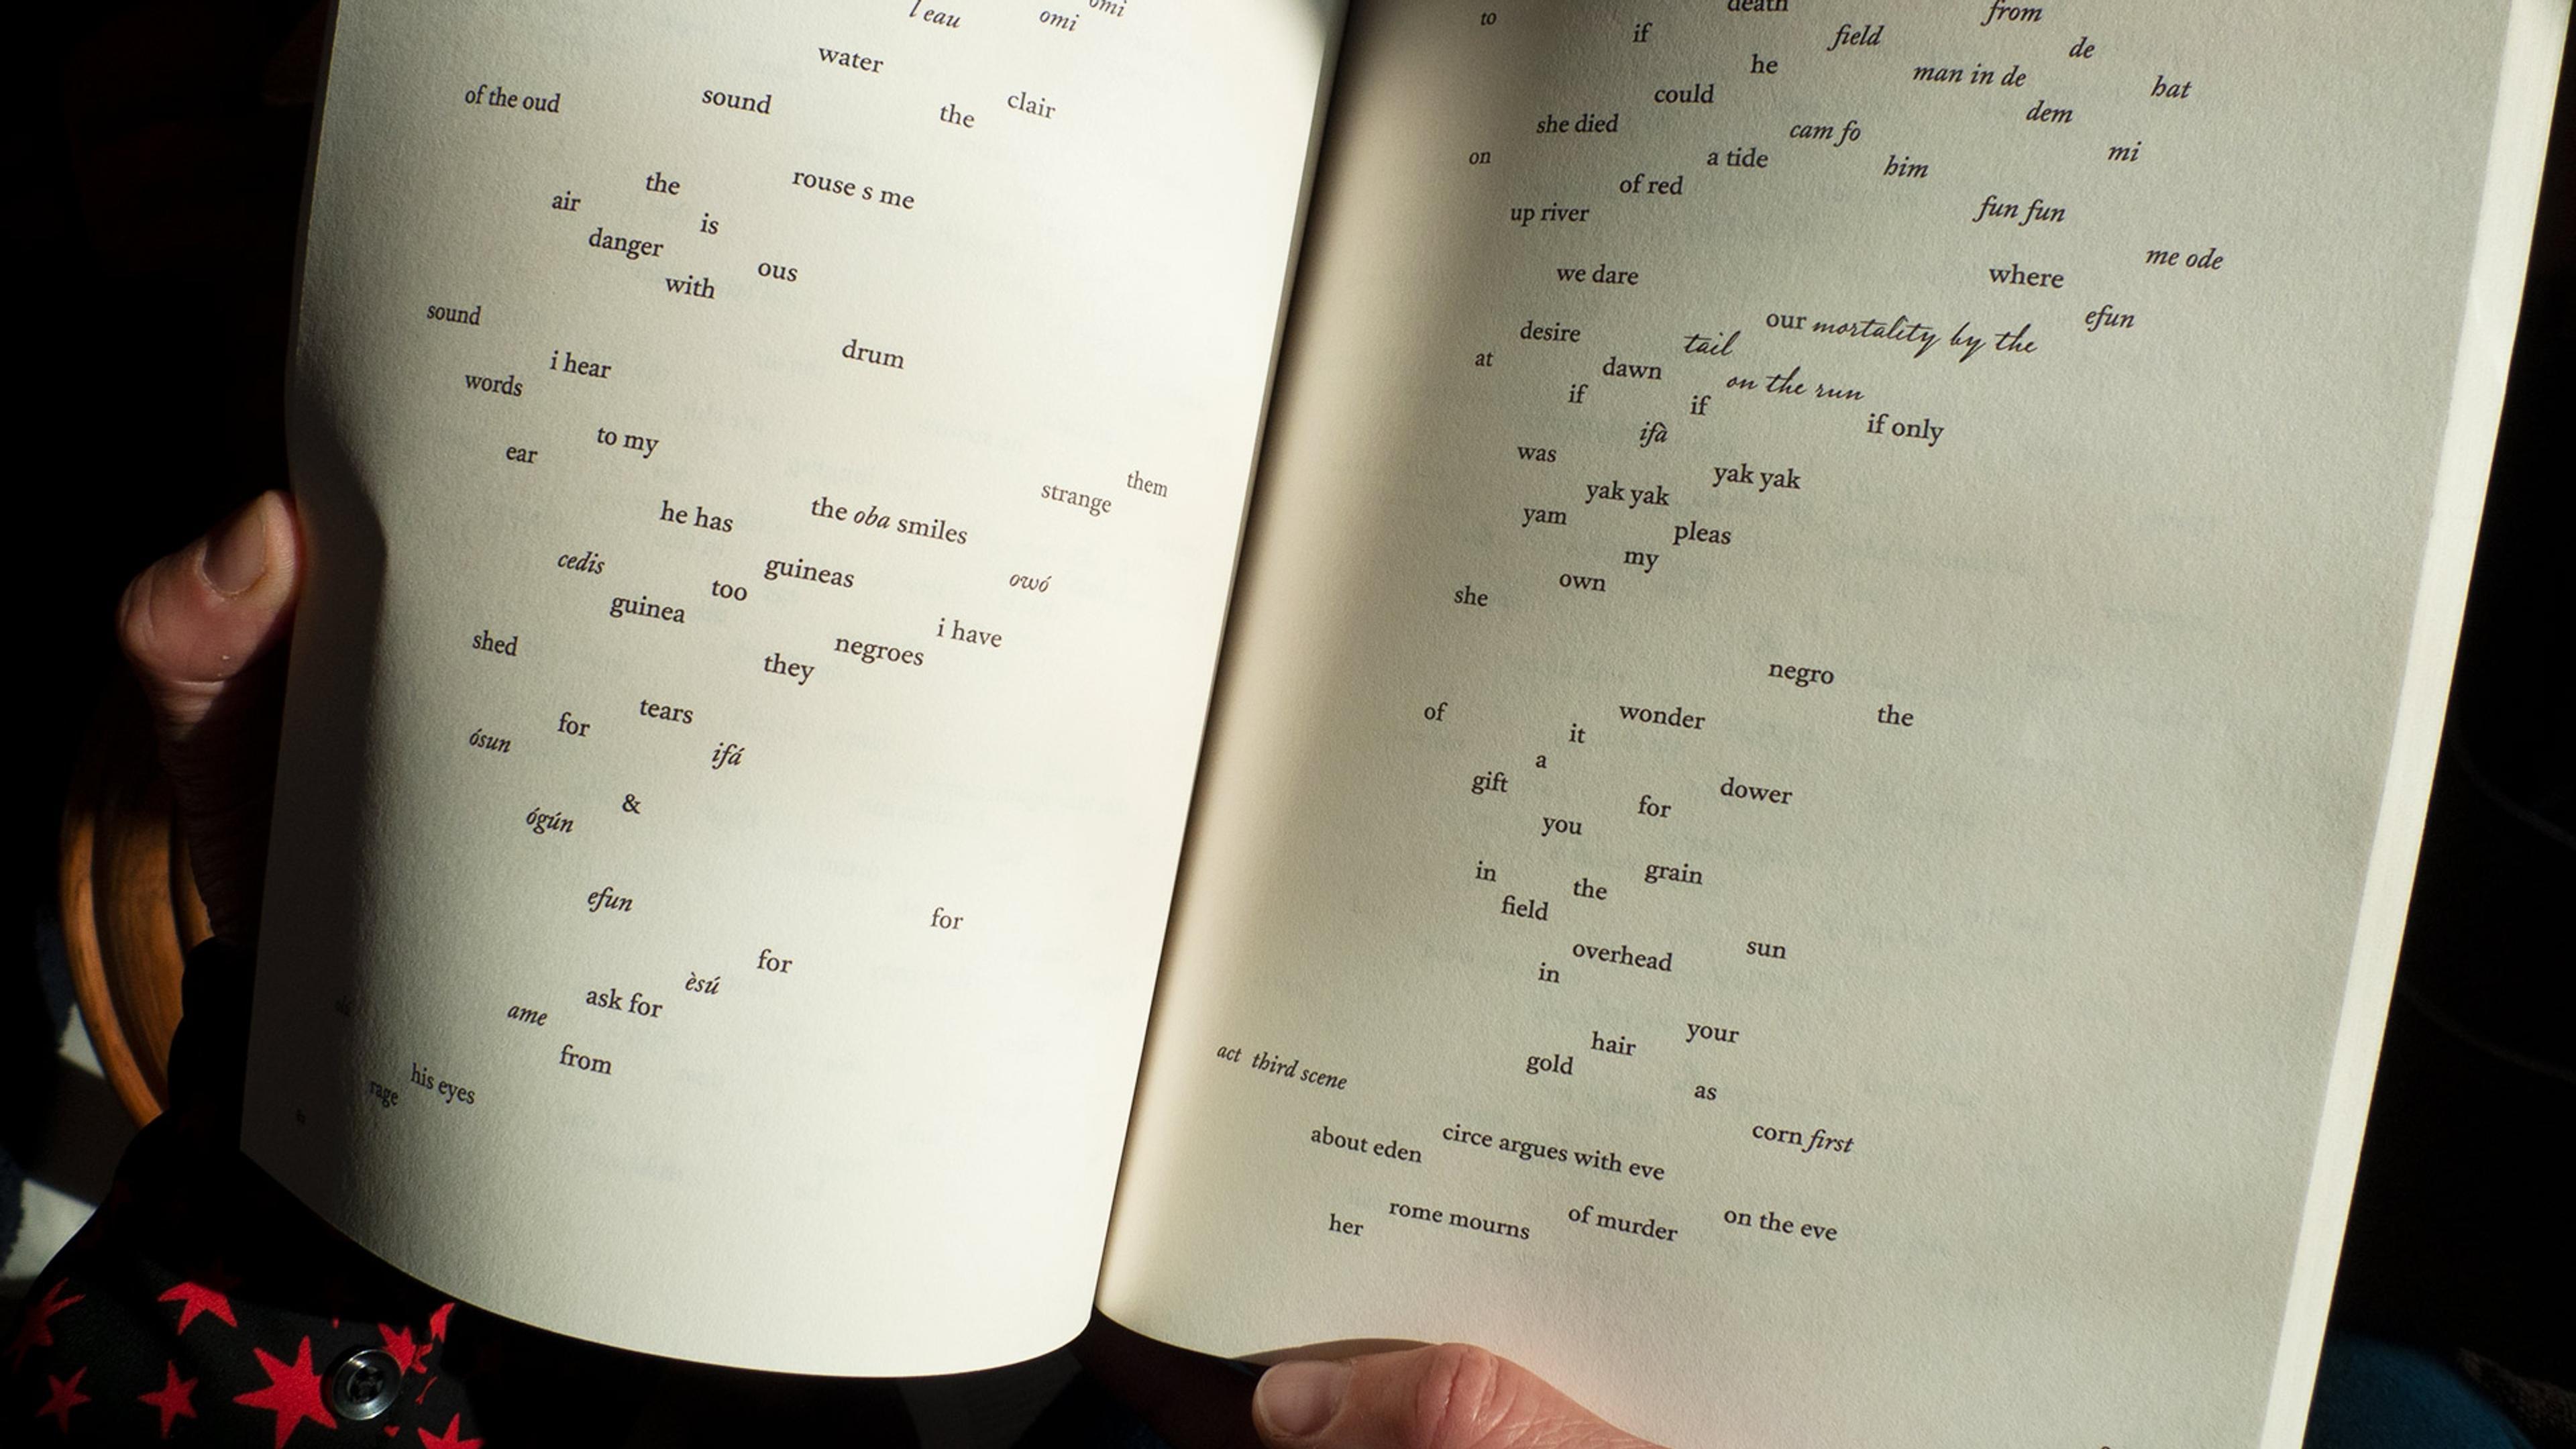 omi
l'eau omi
water
of the oud sound the clair
the rouse s me
air is
danger ous
with
sound drum
i hear
words
to my
ear them
he has the oba smiles strange
cedis guineas owó
guinea too
shed they negroes i have
tears
ósun for ifá
&
ógún
efun for
for
ask for èsú
ame
from
his eyes
rage
death from
to if field de
he man in de hat
could dem
she died cam fo mi
on a tide him
of red
up river fun fun
me ode
we dare where
our mortality by the efun
desire tail
at dawn on the run
if if if only
ifà
was yak yak
yak yak
yam pleas
my
own
she
negro
of wonder the
it
a
gift for dower
you
in the grain
field
overhead sun
in
your
hair
gold as
act third scene
corn first
circe argues with eve
about eden
rome mourns of murder on the eve
her